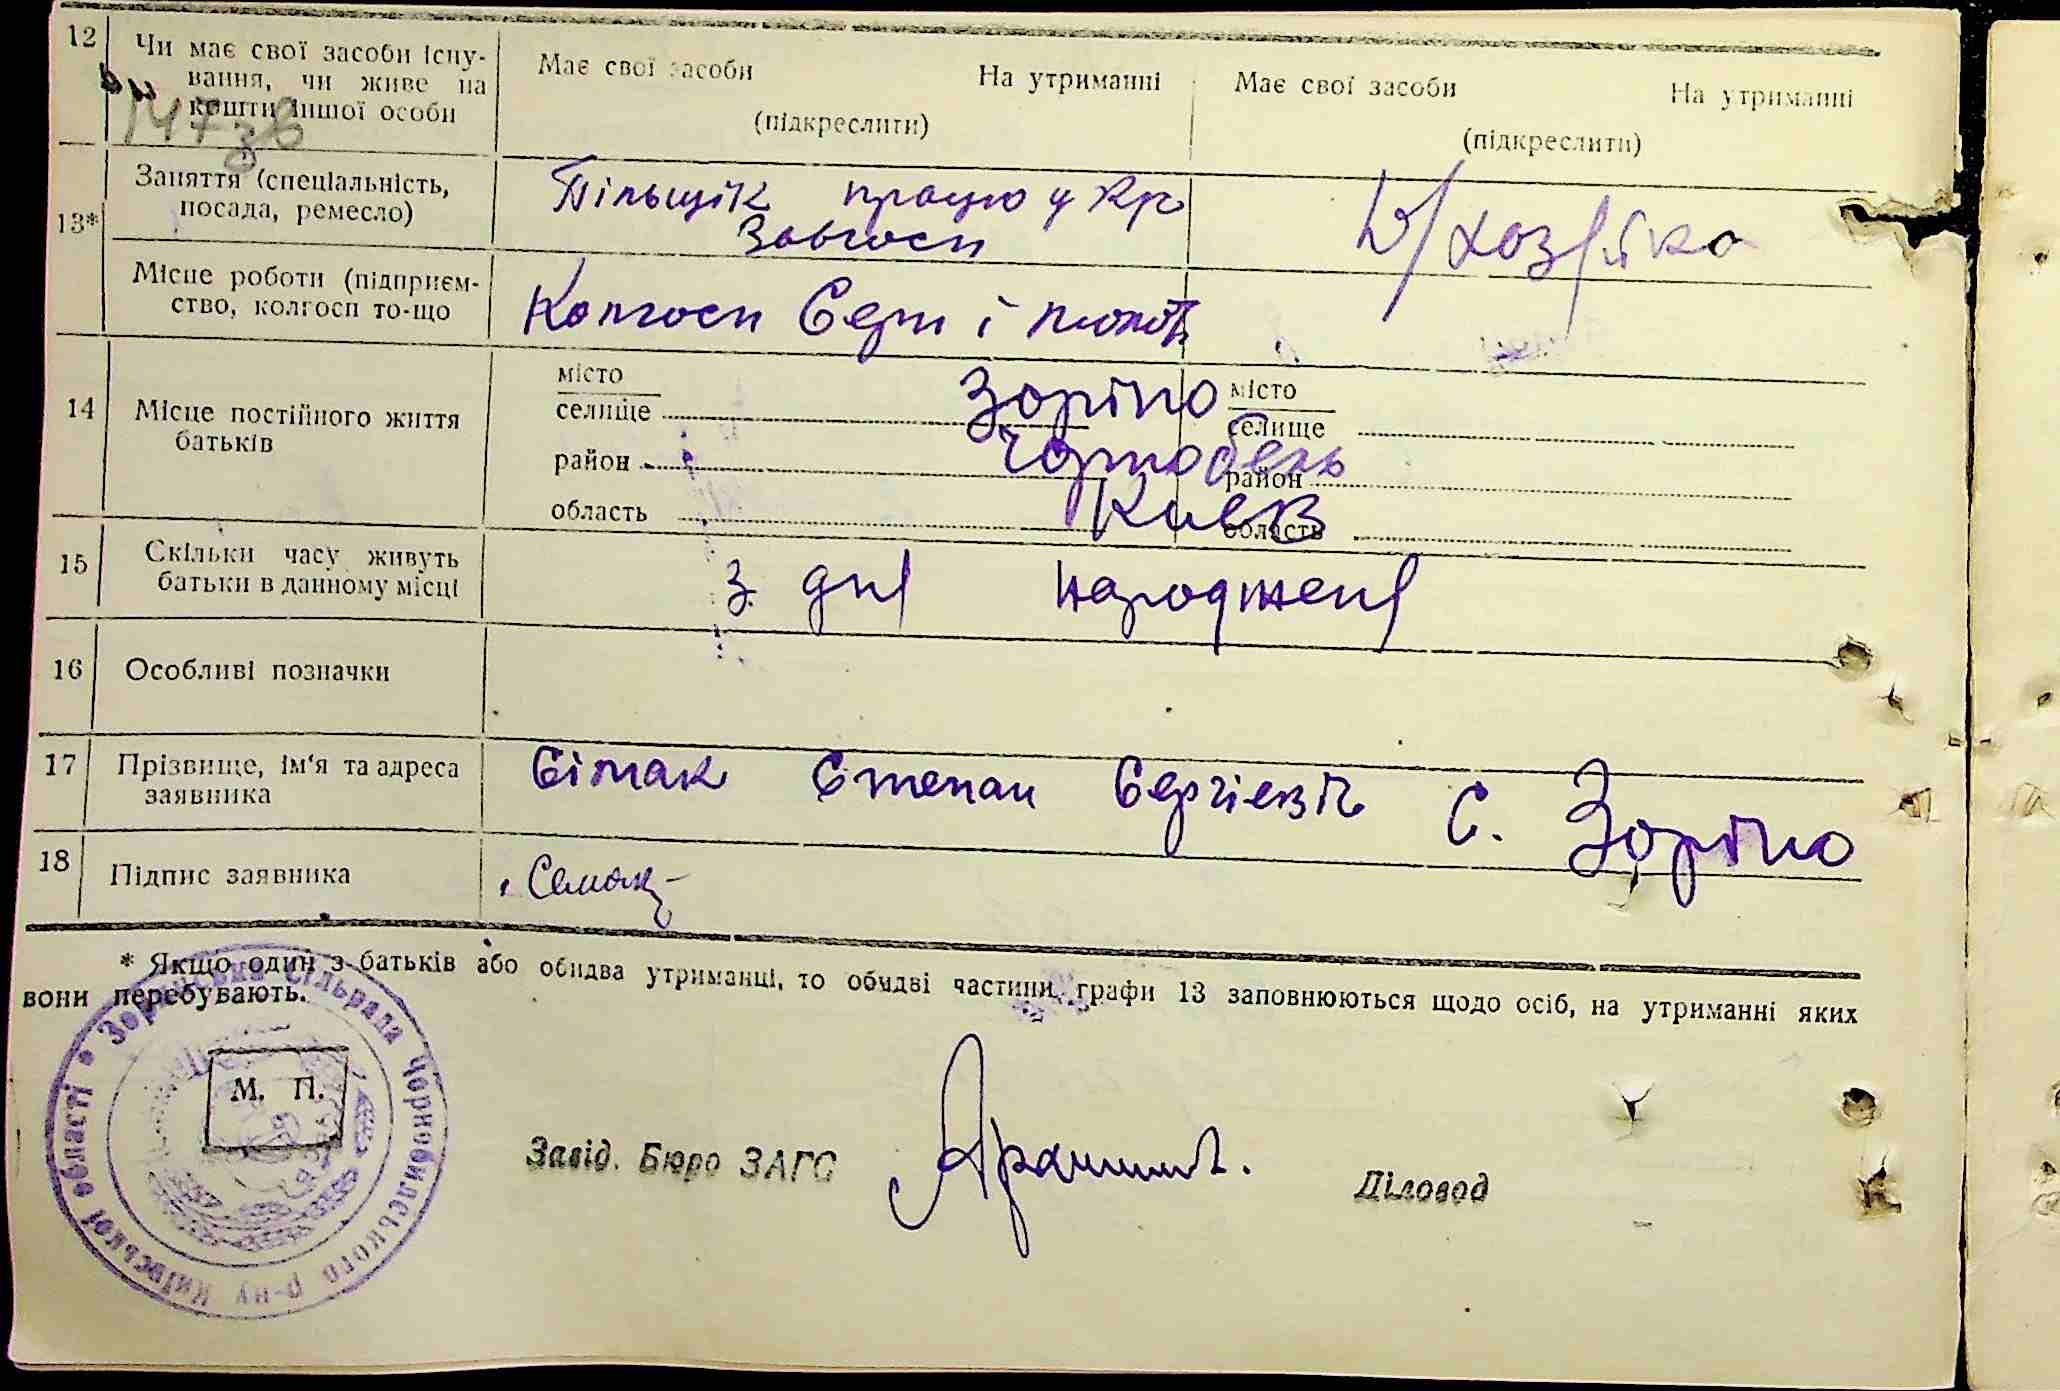 12
Чи має свої засоби існу-
вання, чи живе на
кошти іншої особи
Має свої засоби На утриманні
(підкреслити)
Має свої засоби На утриманні
(підкреслити)
13*
Заняття (спеціальність,
посада, ремесло)
працю у
Д/хозяйка
Місце роботи (підприєм-
ство, колгосп то-що
Колгосп Серп і молот
14
Місце постійного життя
батьків
місто
селище Зоріно
район Чорнобель
область Киев
місто
селище
район
область
15
Скільки часу живуть
батьки в данному місці
З дня народженя
16
Особливі позначки
17
Прізвище, ім'я та адреса
заявника
Сімак Степан Сергієвіч С. Зоріно
18
Підпис заявника
Семак
* Якщо один з батьків або обидва утриманці, то обидві частини графи 13 заповнюються щодо осіб, на утриманні яких
вони перебувають.
сільрада Чорнобильського р-ну Київської області
М. П.
Завід. Бюро ЗАГС
Діловод